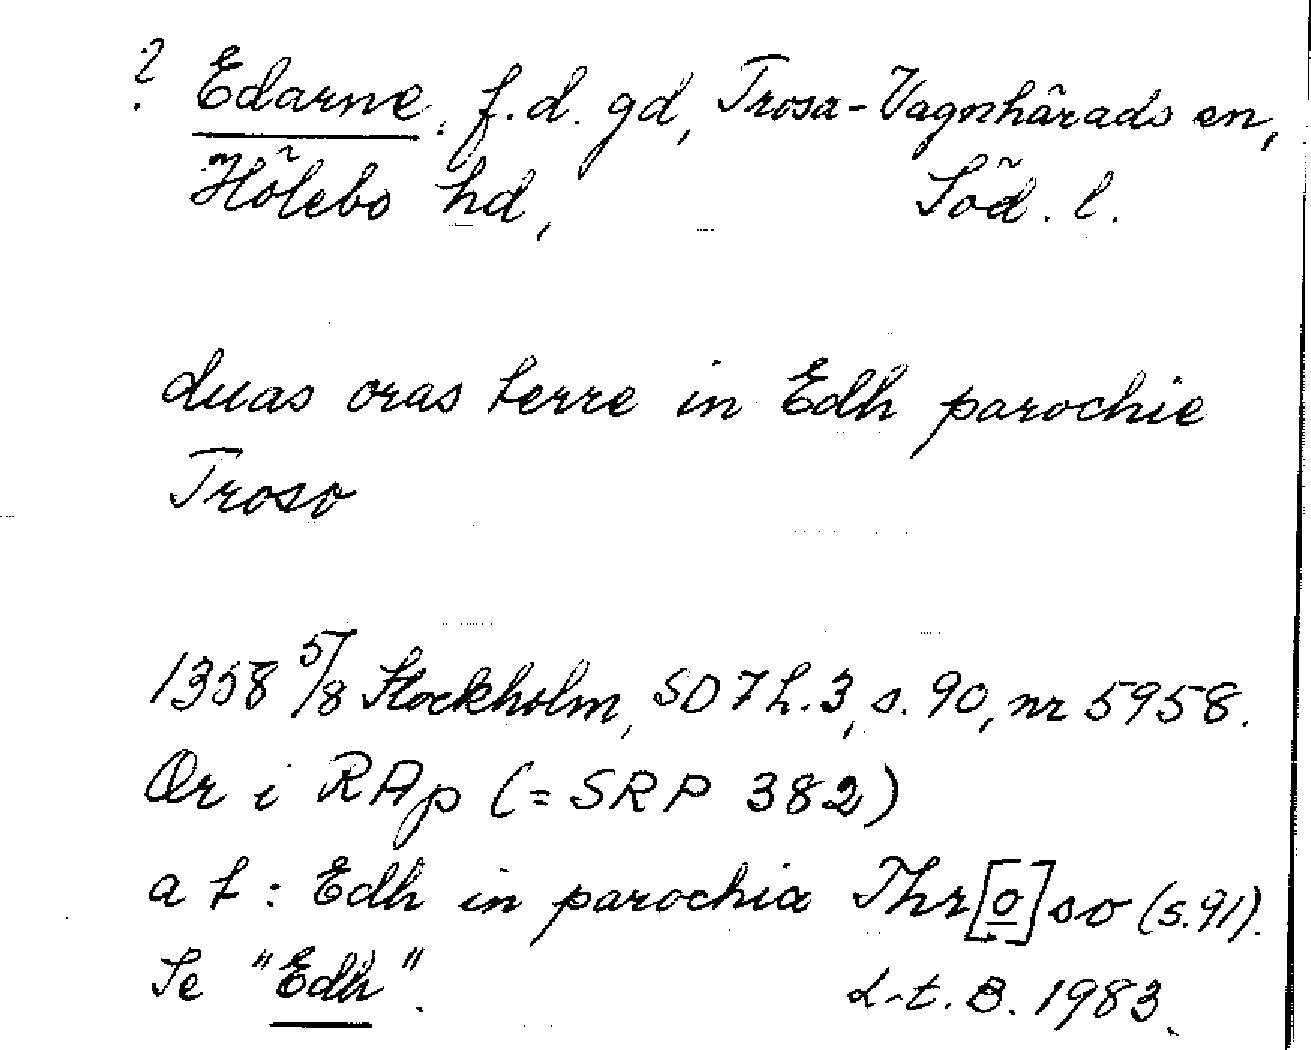 ? Edarne, f.d. gd, Trosa-Vagnhärads sn,
Hölebo hd, Söd. l.
duas oras terre in Edh parochie
Troso
1358 5/8 Stockholm, SD 7 h. 3, s. 90, nr 5958.
Or i RAp (= SRP 382)
a t: Edh in parochia Thr[o]so (s. 91).
Se "Edh". L-t. B. 1983.